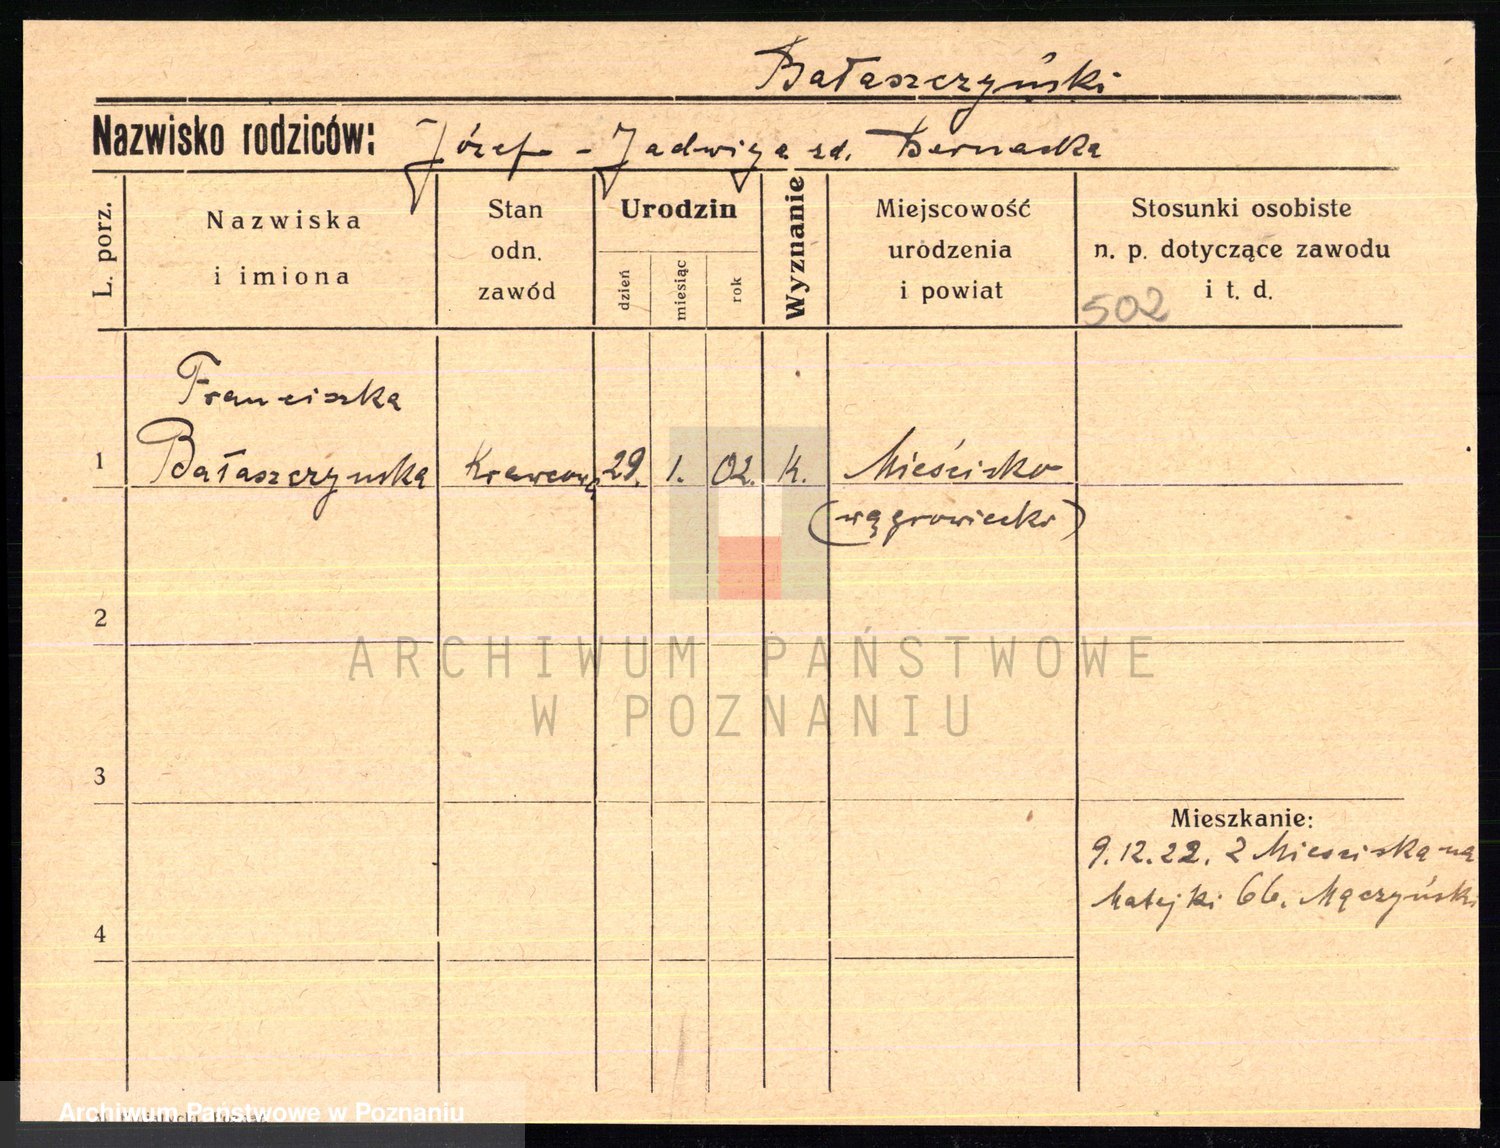 Bałaszczyński
Nazwisko rodziców: Józef - Jadwiga zd. Bernacka
L. porz.
Nazwiska
i imiona
Stan
odn.
zawód
Urodzin
dzień
miesiąc
rok
Wyznanie
Miejscowość
urodzenia
i powiat
Stosunki osobiste
n. p. dotyczące zawodu
i t. d.
502
Franciszka
1 Bałaszczynska Krawcową 29. 1. 02. K. Mieścisko
(wągrowiecki)
2
ARCHIWUM PAŃSTWOWE
W POZNANIU
3
Mieszkanie:
9.12.22. z Miesciska na
Matejki 66. Mączyński
4
Archiwum Państwowe w Poznaniu